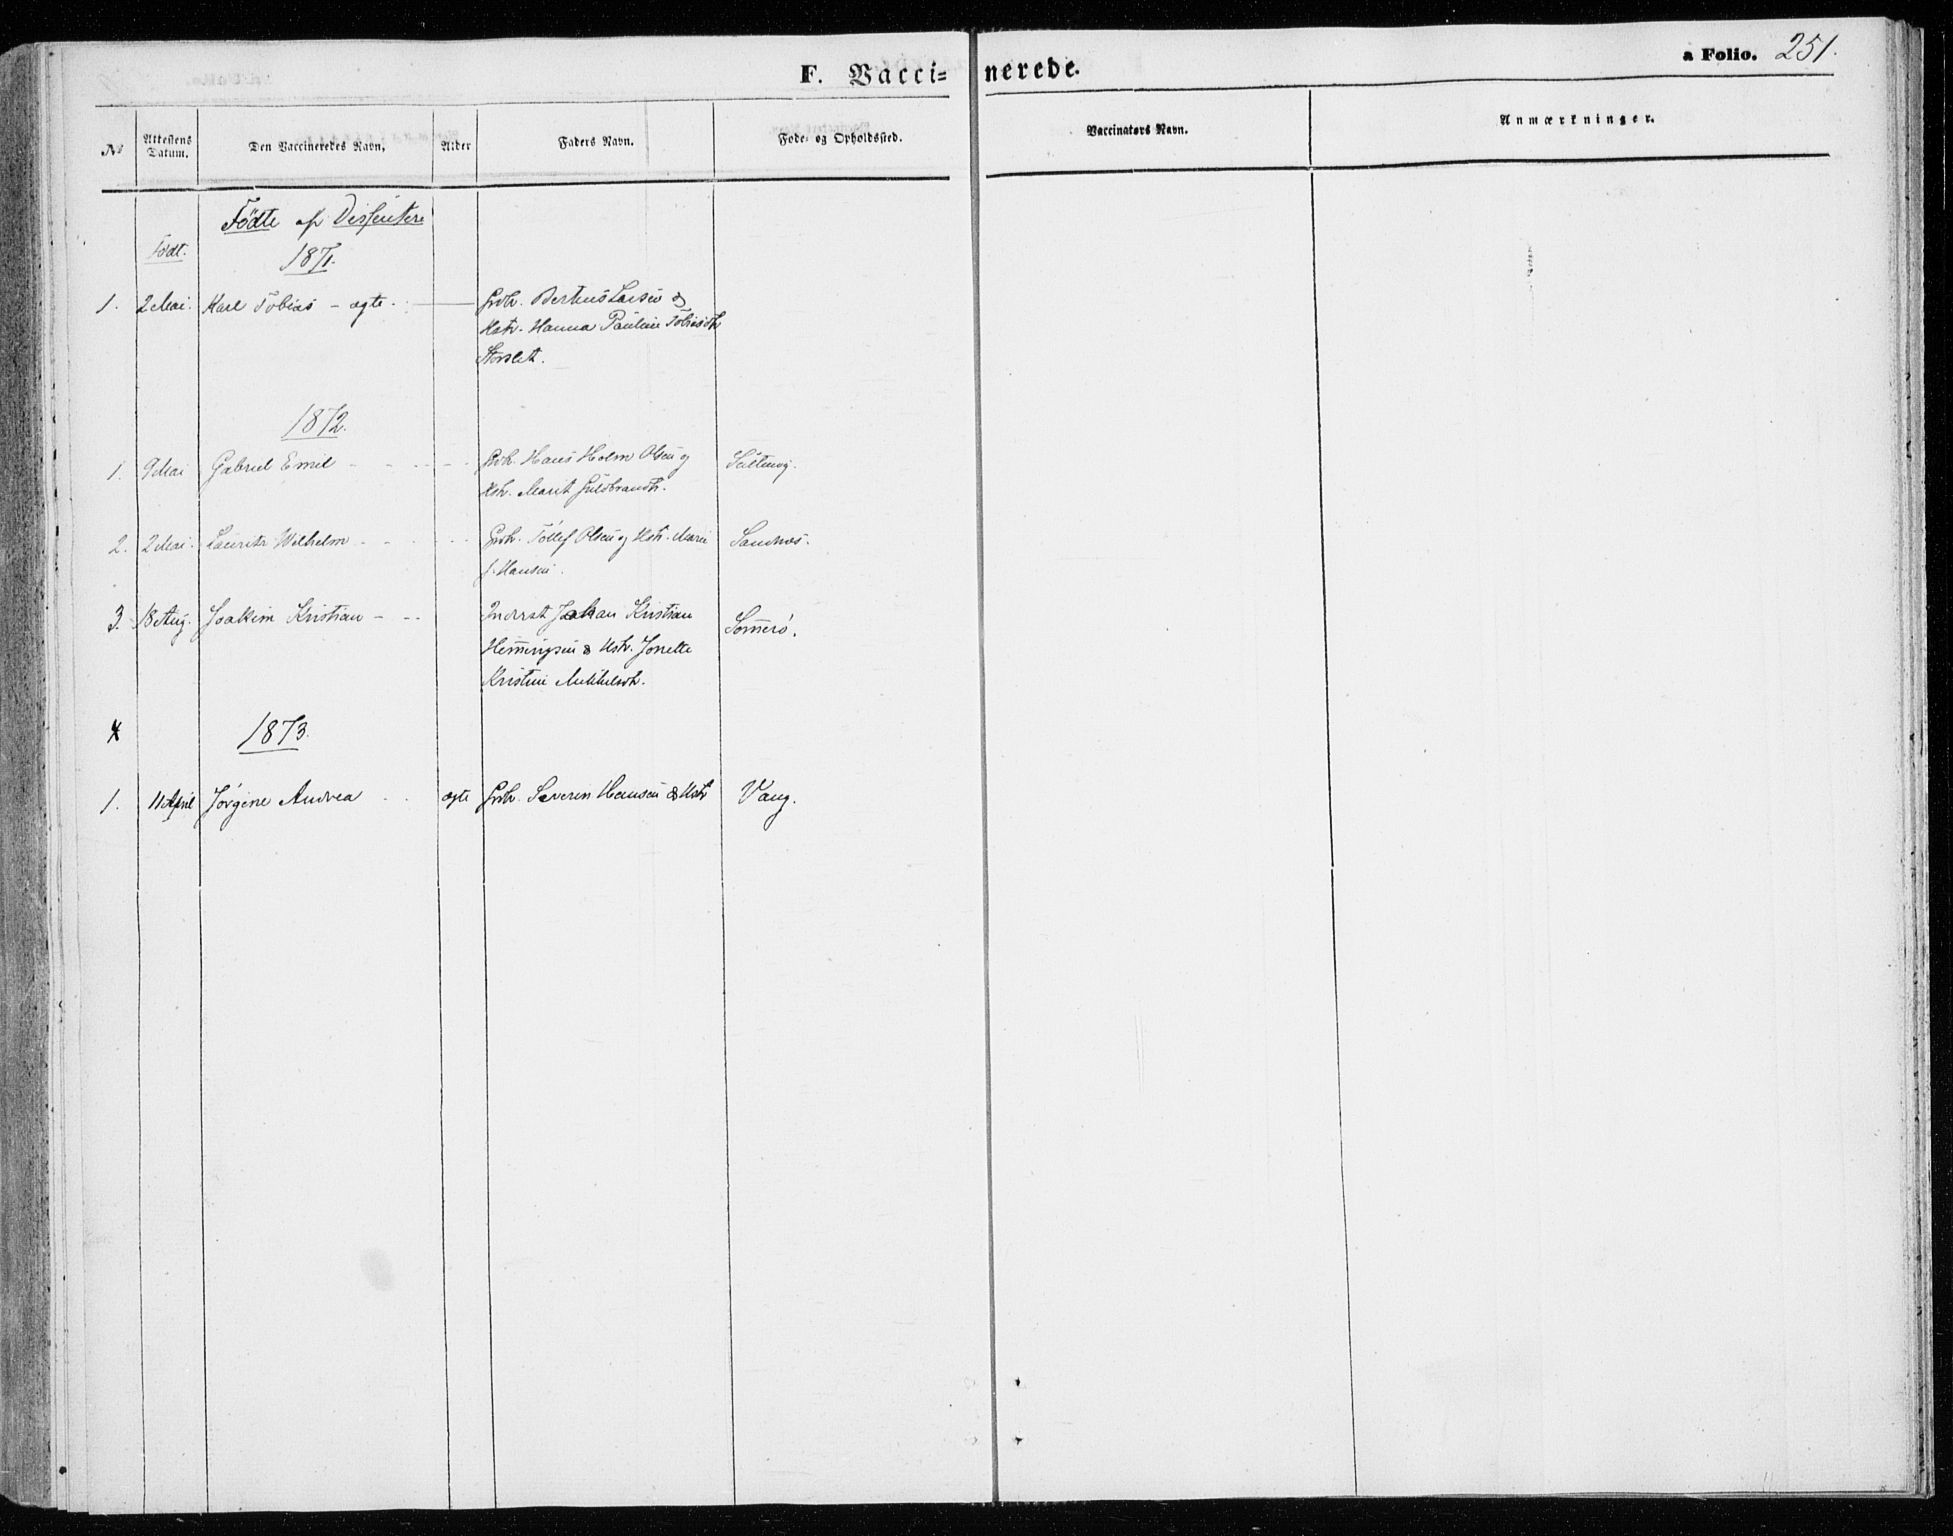 F. Vacci-
nerede.
a Folio. 251.
No
Attestens Datum.
Den Vaccineredes Navn.
Alder
Faders Navn.
Føde- og Opholdssted.
Vaccinatørs Navn.
Anmærkninger.
Födte af Dissentere
Født. 1871.
1. 2 Mai. Karl Tobias - ægte. Grdb. Bertheus Larsen &
Hstr. Hanna Pauline Tobiasdtr
Storslet.
1872.
1. 9 Mai Gabriel Emil Grdb. Hans Holm Olsen og
Hstr. Marit Guldbrandtr.
2. 2 Mai. Lauritz Wilhelm Grdb. Tollef Olsen og Hstr. Marie Sandnes.
f. Hansen.
3. 18 Aug. Joakim Kristian Inderst Johan Kristian Sommerö.
Hemmingsen & Hstr. Jonette
Kristine Mikkelsdtr.
1873.
1. 11 April Jörgine Andrea ægte Grdb. Severin Hansen & Hstr Vang.